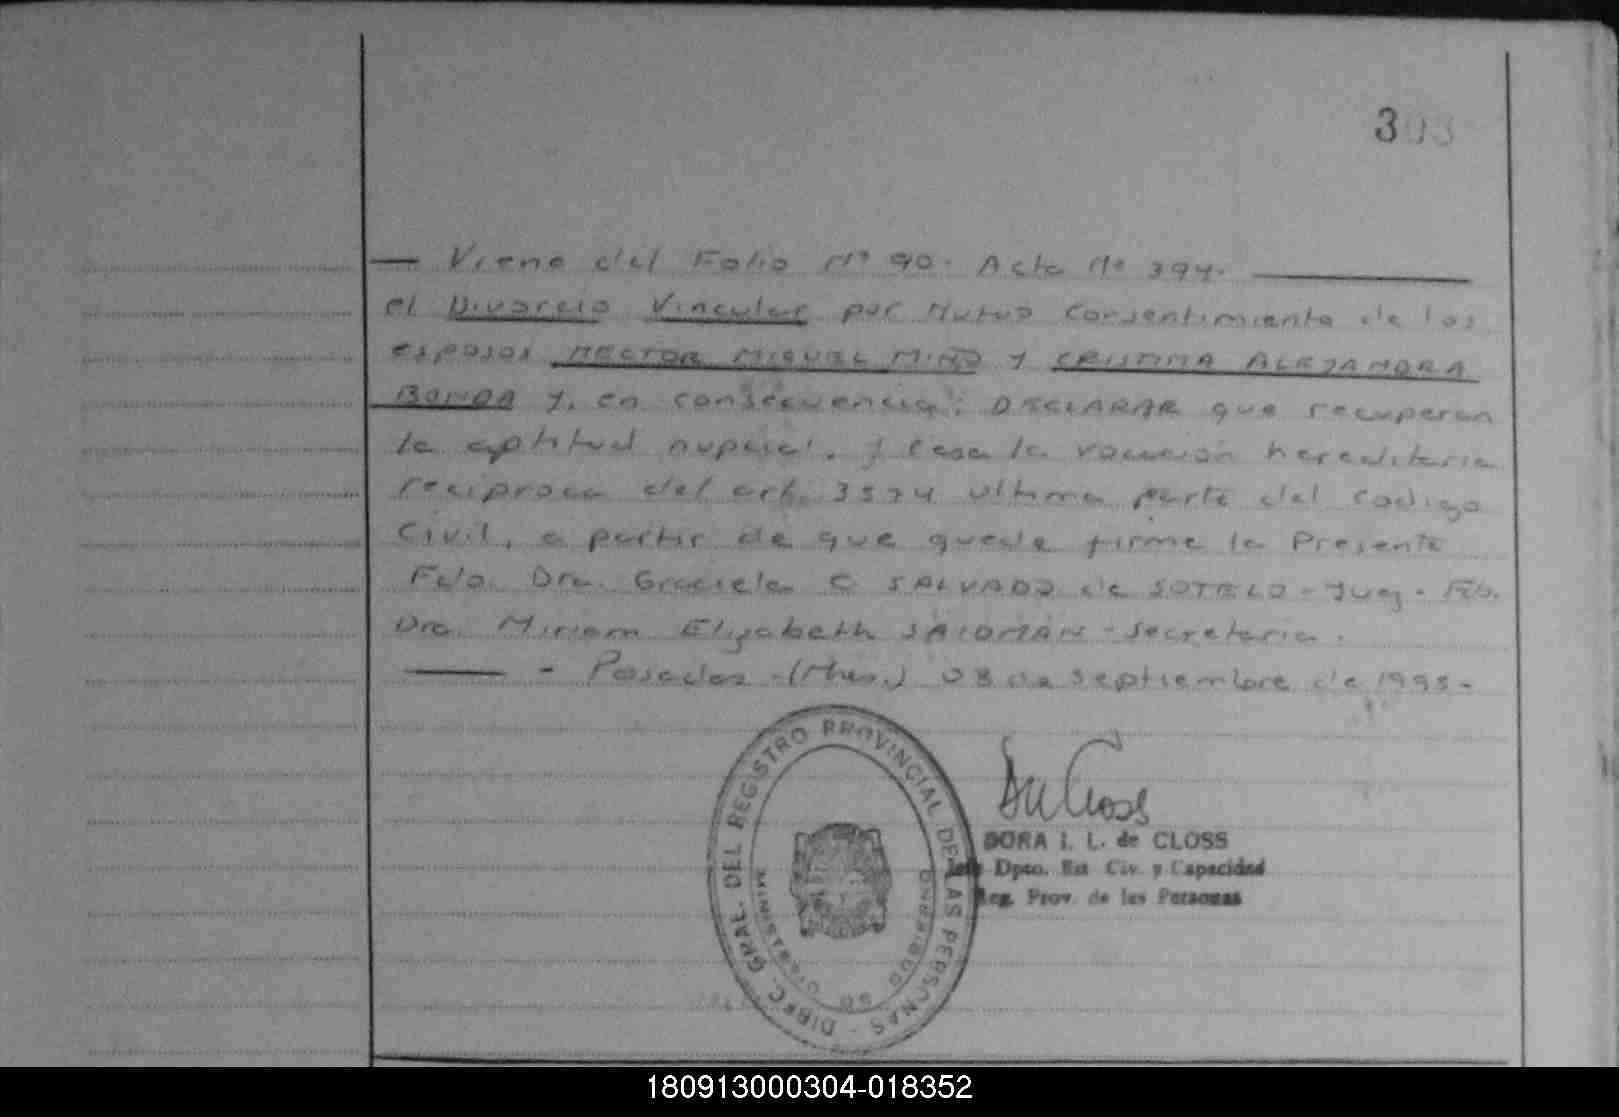 303
— Viene del Folio Nº 90. Acta Nº 394. —
el Divorcio Vincular por Mutuo Consentimiento de los
esposos HECTOR MIGUEL MIÑO Y CRISTINA ALEJANDRA
BONDA Y, en consecuencia: DECLARAR que recuperan
la aptitud nupcial. y Cesa la vocación hereditaria
reciproca del art. 3574 ultima parte del codigo
Civil, a partir de que quede firme la Presente
Fdo. Dra. Graciela C SALVADO de SOTELO - Juez. Fdo.
Dra. Miriam Elizabeth SALOMÓN - Secretaria.
— - Posadas - (Mnes.) 08 de Septiembre de 1995 -
DIREC. GRAL. DEL REGISTRO PROVINCIAL DE LAS PERSONAS -
MINISTERIO DE GOBIERNO
DORA I. L. de CLOSS
Jefe Dpto. Est. Civ. y Capacidad
Reg. Prov. de las Personas
180913000304-018352